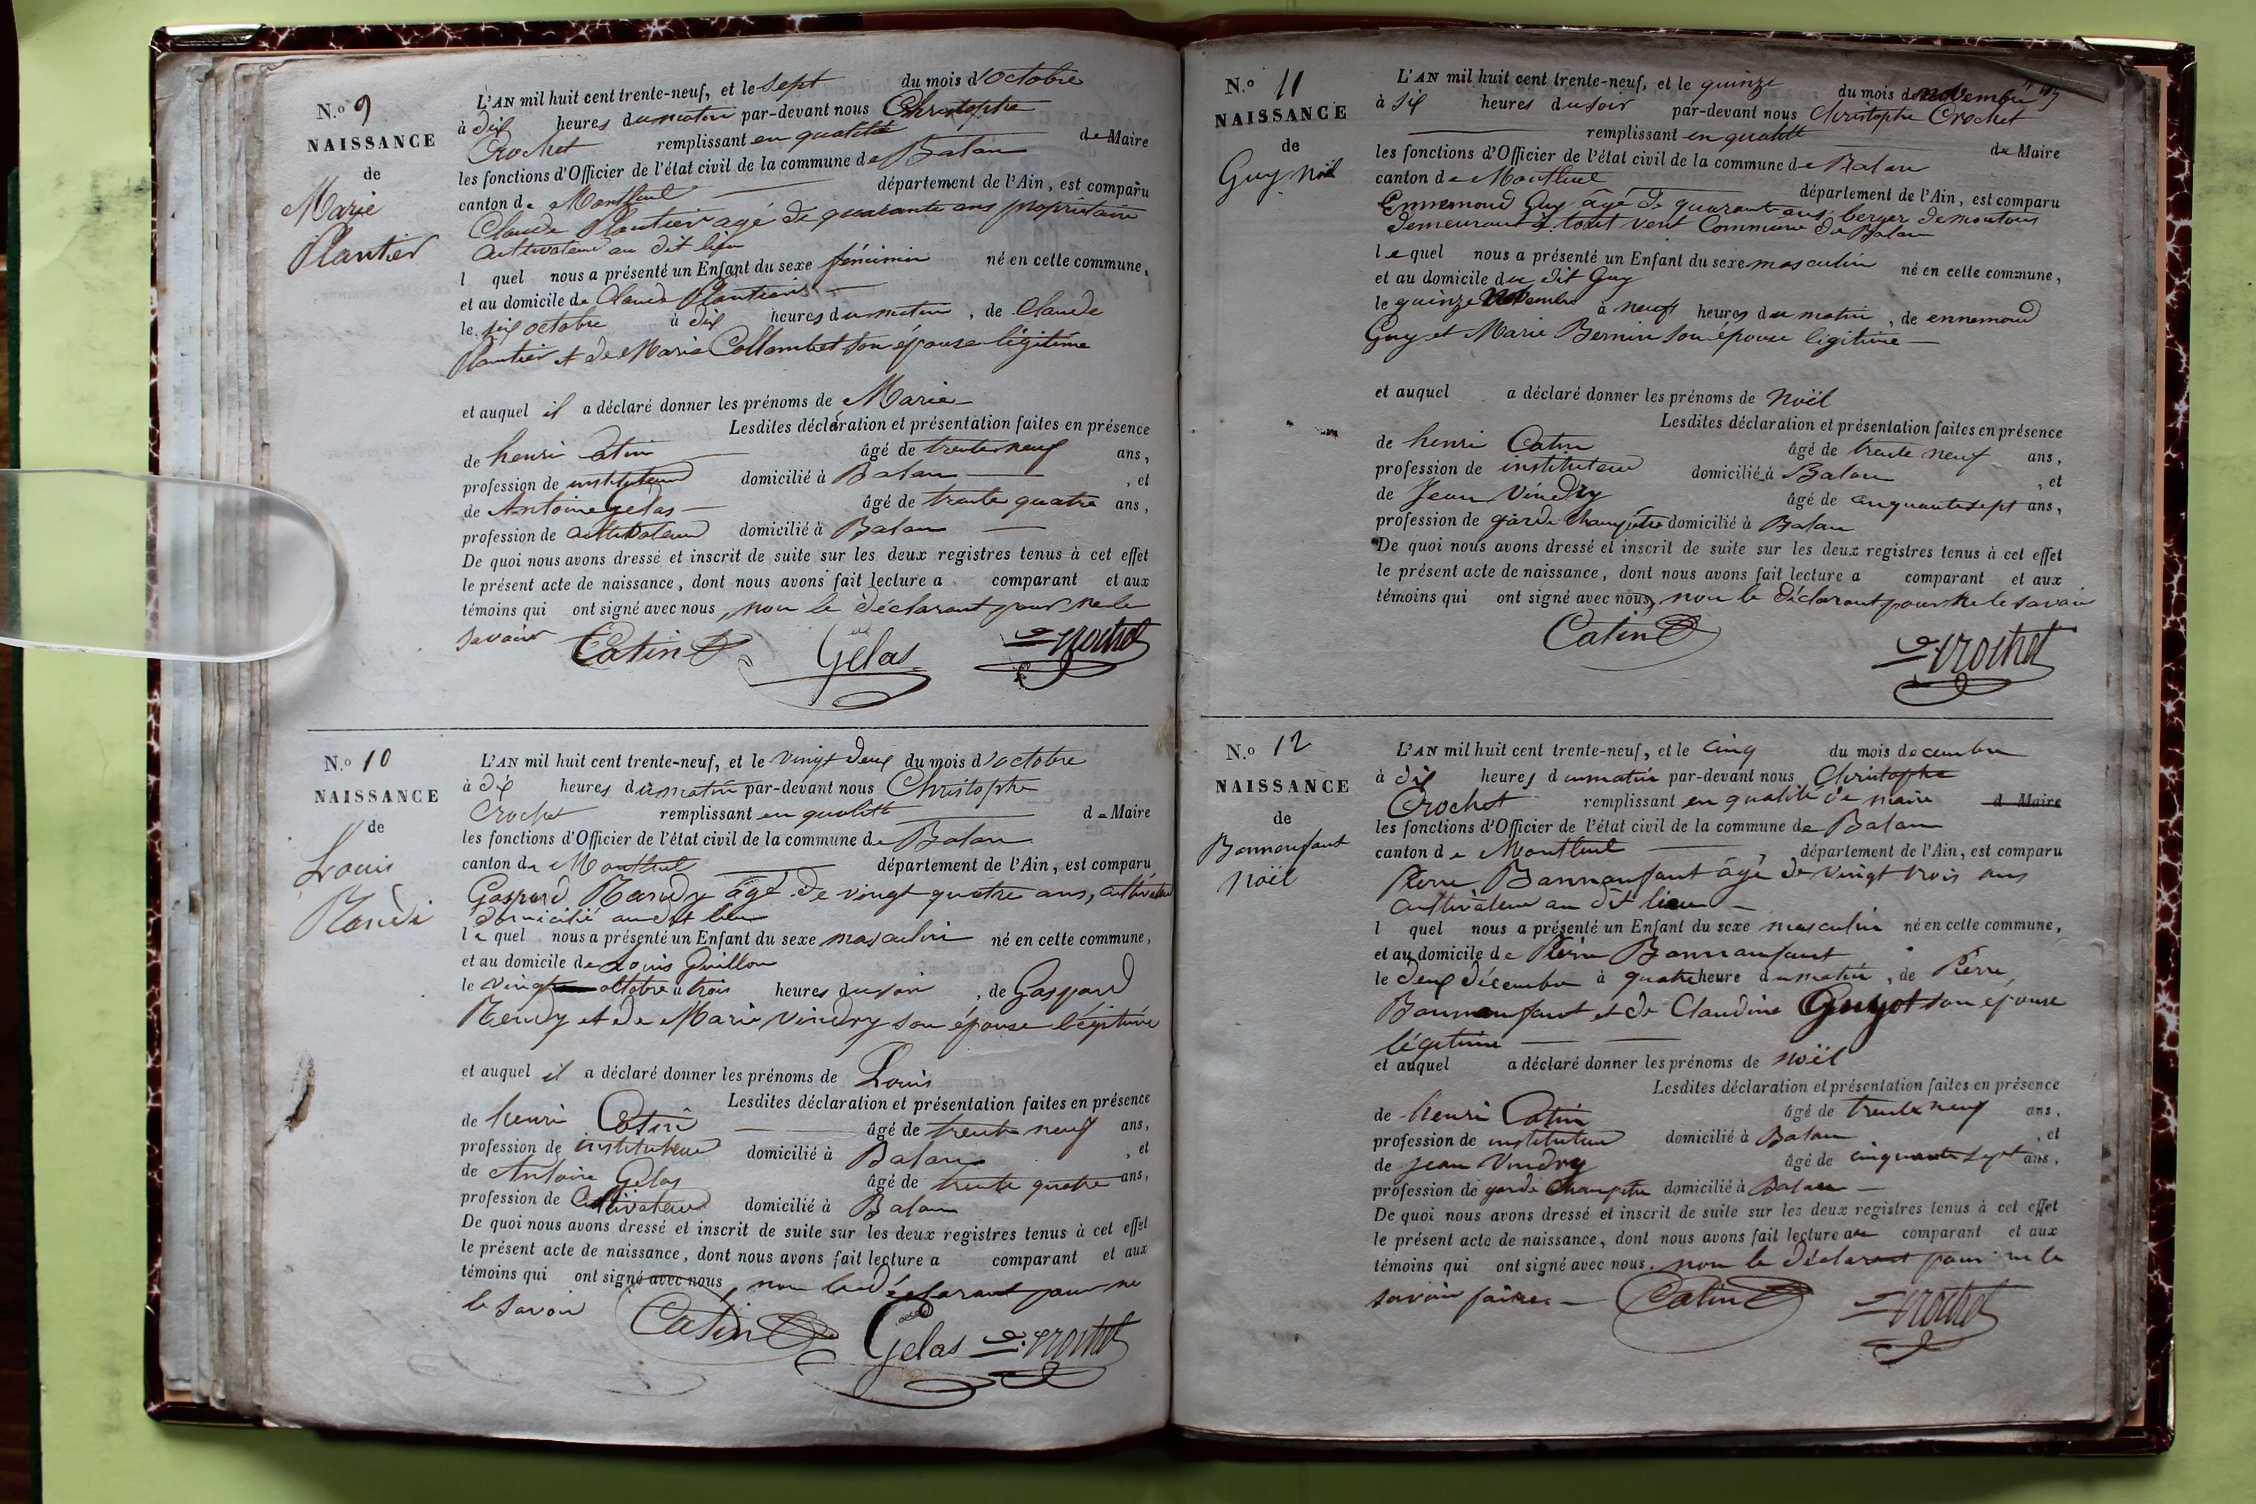 N.º 9
NAISSANCE
de
Marie
Plantier
L'AN mil huit cent trente-neuf, et le sept du mois d'octobre
à dix heures du matin par-devant nous Christophe
Crochet remplissant en qualité de Maire
les fonctions d'Officier de l'état civil de la commune de Balan
canton de Montluel département de l'Ain, est comparu
Claude Plantier agé de quarante ans propriétaire
cultivateur au dit lieu
l quel nous a présenté un Enfant du sexe féminin né en cette commune,
et au domicile de Claude Plantier
le six octobre à dix heures du matin, de Claude
Plantier et de Marie Collombet son épouse légitime
et auquel il a déclaré donner les prénoms de Marie
Lesdites déclaration et présentation faites en présence
de henri Catin âgé de trente neuf ans,
profession de instituteur domicilié à Balan, et
de Antoine Gelas âgé de trente quatre ans,
profession de cultivateur domicilié à Balan
De quoi nous avons dressé et inscrit de suite sur les deux registres tenus à cet effet
le présent acte de naissance, dont nous avons fait lecture a comparant et aux
témoins qui ont signé avec nous, non le déclarant pour ne le
savoir Catin Gelas Crochet
N.º 10
NAISSANCE
de
Louis
L'AN mil huit cent trente-neuf, et le vingt deux du mois d'octobre
à dix heures du matin par-devant nous Christophe
Crochet remplissant en qualité de Maire
les fonctions d'Officier de l'état civil de la commune de Balan
canton de Montluel département de l'Ain, est comparu
Gaspard âgé de vingt quatre ans, cultivateur
domicilié au dit lieu
le quel nous a présenté un Enfant du sexe masculin né en cette commune,
et au domicile de Louis Guillon
le vingt octobre à trois heures du soir, de Gaspard
et de Marie Vindry son épouse légitime
et auquel il a déclaré donner les prénoms de Louis
Lesdites déclaration et présentation faites en présence
de henri Catin âgé de trente neuf ans,
profession de instituteur domicilié à Balan, et
de Antoine Gelas âgé de trente quatre ans,
profession de Cultivateur domicilié à Balan
De quoi nous avons dressé et inscrit de suite sur les deux registres tenus à cet effet
le présent acte de naissance, dont nous avons fait lecture a comparant et aux
témoins qui ont signé avec nous, non le déclarant pour ne
le savoir Catin Gelas Crochet
N.º 11
NAISSANCE
de
Guy Noël
L'AN mil huit cent trente-neuf, et le quinze du mois de novembre
à six heures du soir par-devant nous Christophe Crochet
remplissant en qualité de Maire
les fonctions d'Officier de l'état civil de la commune de Balan
canton de Montluel département de l'Ain, est comparu
Ennemond Guy âgé de quarante ans, berger de moutons
demeurant à tout vent Commune de Balan
le quel nous a présenté un Enfant du sexe masculin né en cette commune,
et au domicile du dit Guy
le quinze novembre à neuf heures du matin, de ennemond
Guy et Marie Bernin son épouse légitime
et auquel a déclaré donner les prénoms de Noël
Lesdites déclaration et présentation faites en présence
de henri Catin âgé de trente neuf ans,
profession de instituteur domicilié à Balan, et
de Jean Vindry âgé de cinquante sept ans,
profession de garde champêtre domicilié à Balan
De quoi nous avons dressé et inscrit de suite sur les deux registres tenus à cet effet
le présent acte de naissance, dont nous avons fait lecture a comparant et aux
témoins qui ont signé avec nous, non le déclarant pour ne le savoir
Catin Crochet
N.º 12
NAISSANCE
de
Bonnanfant
Noël
L'AN mil huit cent trente-neuf, et le cinq du mois decembre
à dix heures du matin par-devant nous Christophe
Crochet remplissant en qualité de maire d Maire
les fonctions d'Officier de l'état civil de la commune de Balan
canton de Montluel département de l'Ain, est comparu
Pierre Bonnanfant âgé de vingt trois ans
cultivateur au dit lieu
l quel nous a présenté un Enfant du sexe masculin né en cette commune,
et au domicile de Pierre Bonnanfant
le deux décembre à quatre heure du matin, de Pierre
Bonnanfant et de Claudine Guyot son épouse
légitime
et auquel a déclaré donner les prénoms de Noël
Lesdites déclaration et présentation faites en présence
de henri Catin âgé de trente neuf ans,
profession de instituteur domicilié à Balan, et
de Jean Vindry âgé de cinquante sept ans,
profession de garde champetre domicilié à Balan
De quoi nous avons dressé et inscrit de suite sur les deux registres tenus à cet effet
le présent acte de naissance, dont nous avons fait lecture au comparant et aux
témoins qui ont signé avec nous, non le déclarant pour ne le
savoir faire Catin Crochet